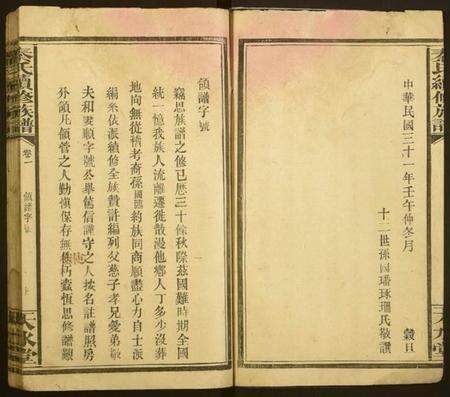 秦氏續修族譜
天水堂
中華民國三十一年壬午仲冬月 穀旦
十二世孫國璠琢珊氏敬譔
領譜字號
竊思族譜之修已歷三十餘秋際茲國難時期全國
統一憶我族人流離遷徙散漫他鄉人丁多少沒葬
地向無從稽考裔孫國璠約族同商願盡心力自士派
編釆依派續修全族貲許編列父慈子孝兄愛弟敬
夫和妻順字號公舉篤信謹守之人按名註譜照房
外領凡領管之人勤慎保存無使朽蠹恆思修譜艱
秦氏續修族譜
卷一
領譜字號
天水堂